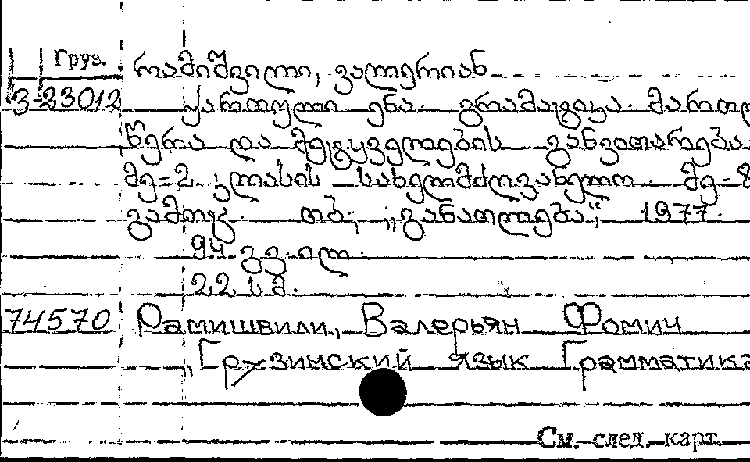 Груз.
რამიშვილი, ვალერიან
3-23012 ქართული ენა. გრამატიკა. მართლ
წერა და მეტყველების განვითარება
მე-2 კლასის სახელმძღვანელო. მე-8
გამოც. თბ., „განათლება“, 1977.
94 გვ. ილ.
22 სმ.
74570 Рамишвили, Валерьян Фомич
„Грузинский язык Грамматика
См. след. карт.